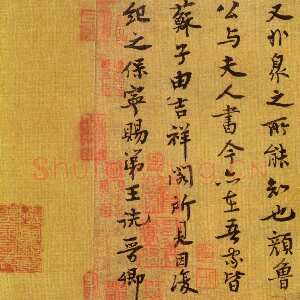 又非泉之所能知也顏魯
公与夫人書今亦在吾家皆
蘇子由吉祥閣所見因復
紀之保寧賜第王詵晉卿